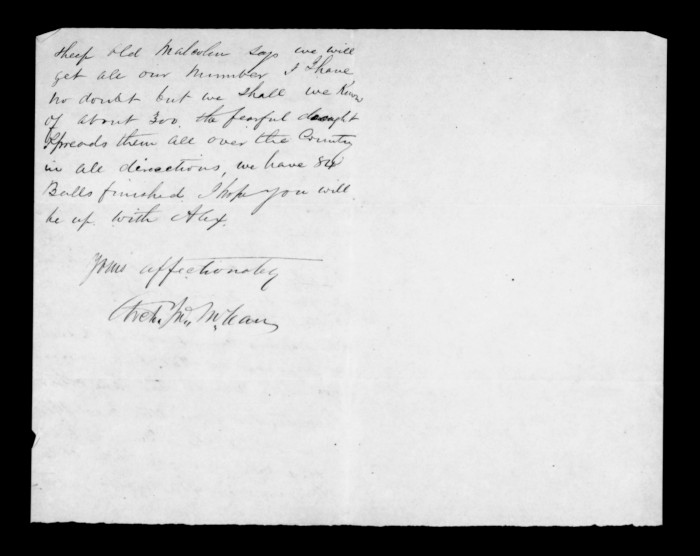 sheep old Malcolm says we will
get all our number & I have
no doubt but we shall we know
of about 300. the fearful drought
spreads them all over the Country
in all directions, we have 84
Bulls finished I hope you will
be up with Alex.
Yours affectionately
Archd. Jno. McLean